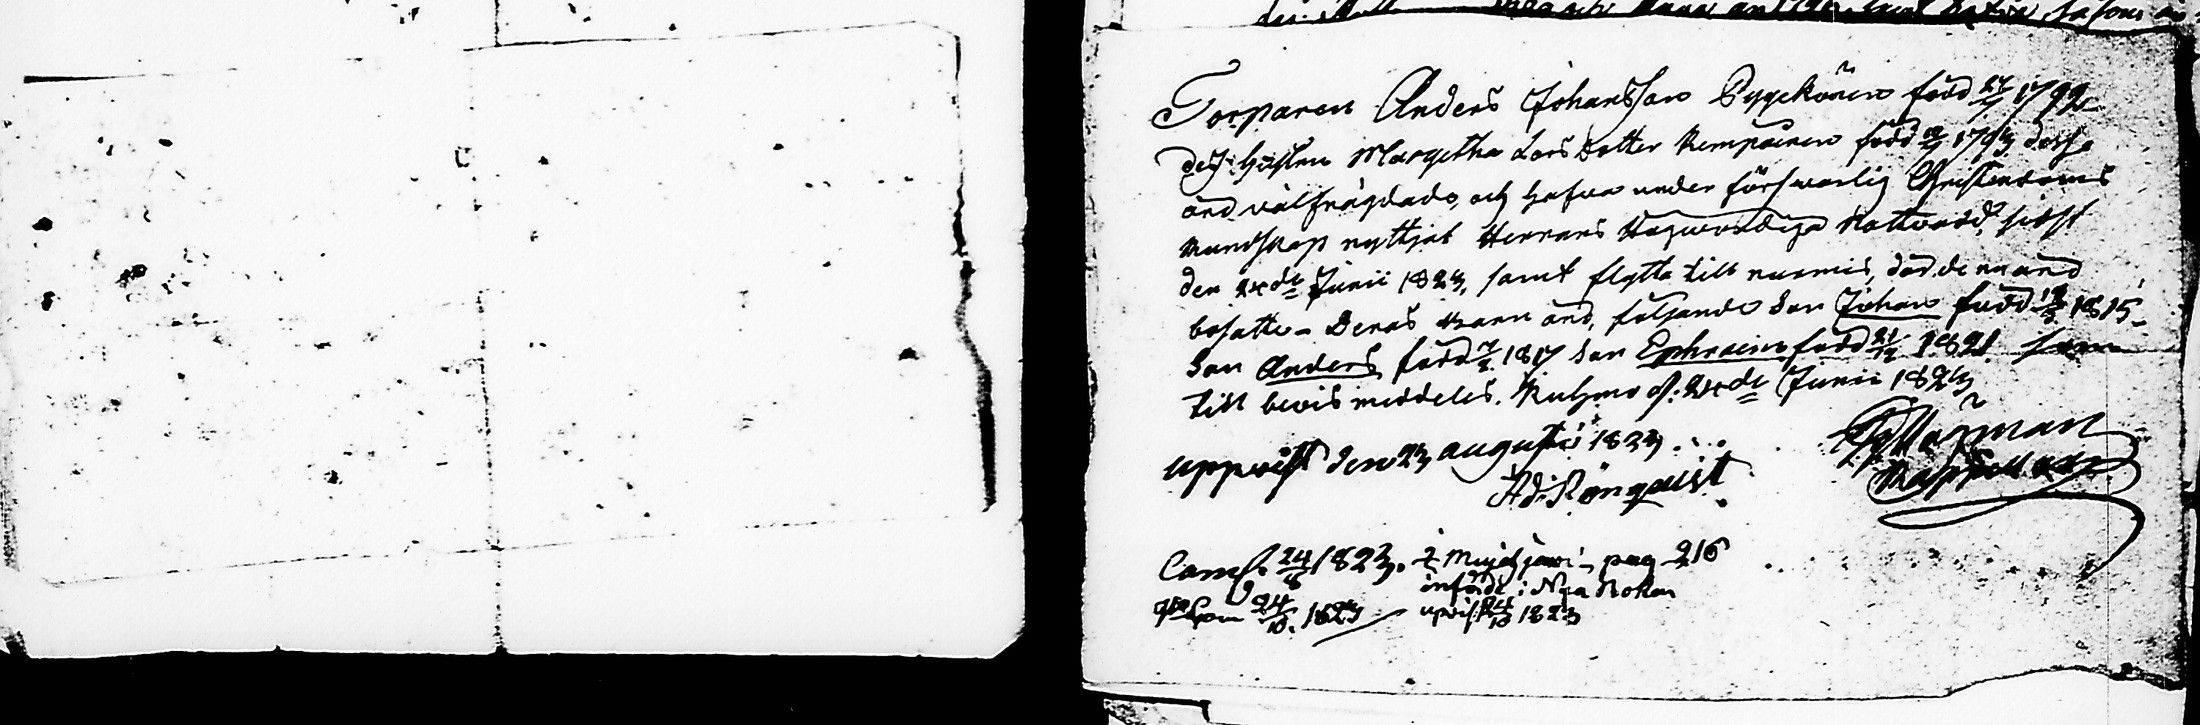 Torparen Anders Johansson Pyykönen född 24/4 1792
des hustru Margetha Lars Dotter Kempainen född 1793 desse
äro välfrägdade, och hafva under förswarlig Christendoms
kundskap nyttjat Herrans Högwördiga Nattvard, sidst
den 24de Junii 1823, samt flytta till
bosatte. Deras barn äro, följande Son Johan född 1815
Son Anders född 1817 Son Ephraim född 21/12 1821. som
till bevis meddeles. Kuhmo d. 24de Junii 1823
uppvist den 23 augusti 1823.
Ad. Rönquist
Kappellan
Comf. 24/8 1823. i pag 216
införde i Nya Boken
24/10. 1823 upvist 24/10 1823